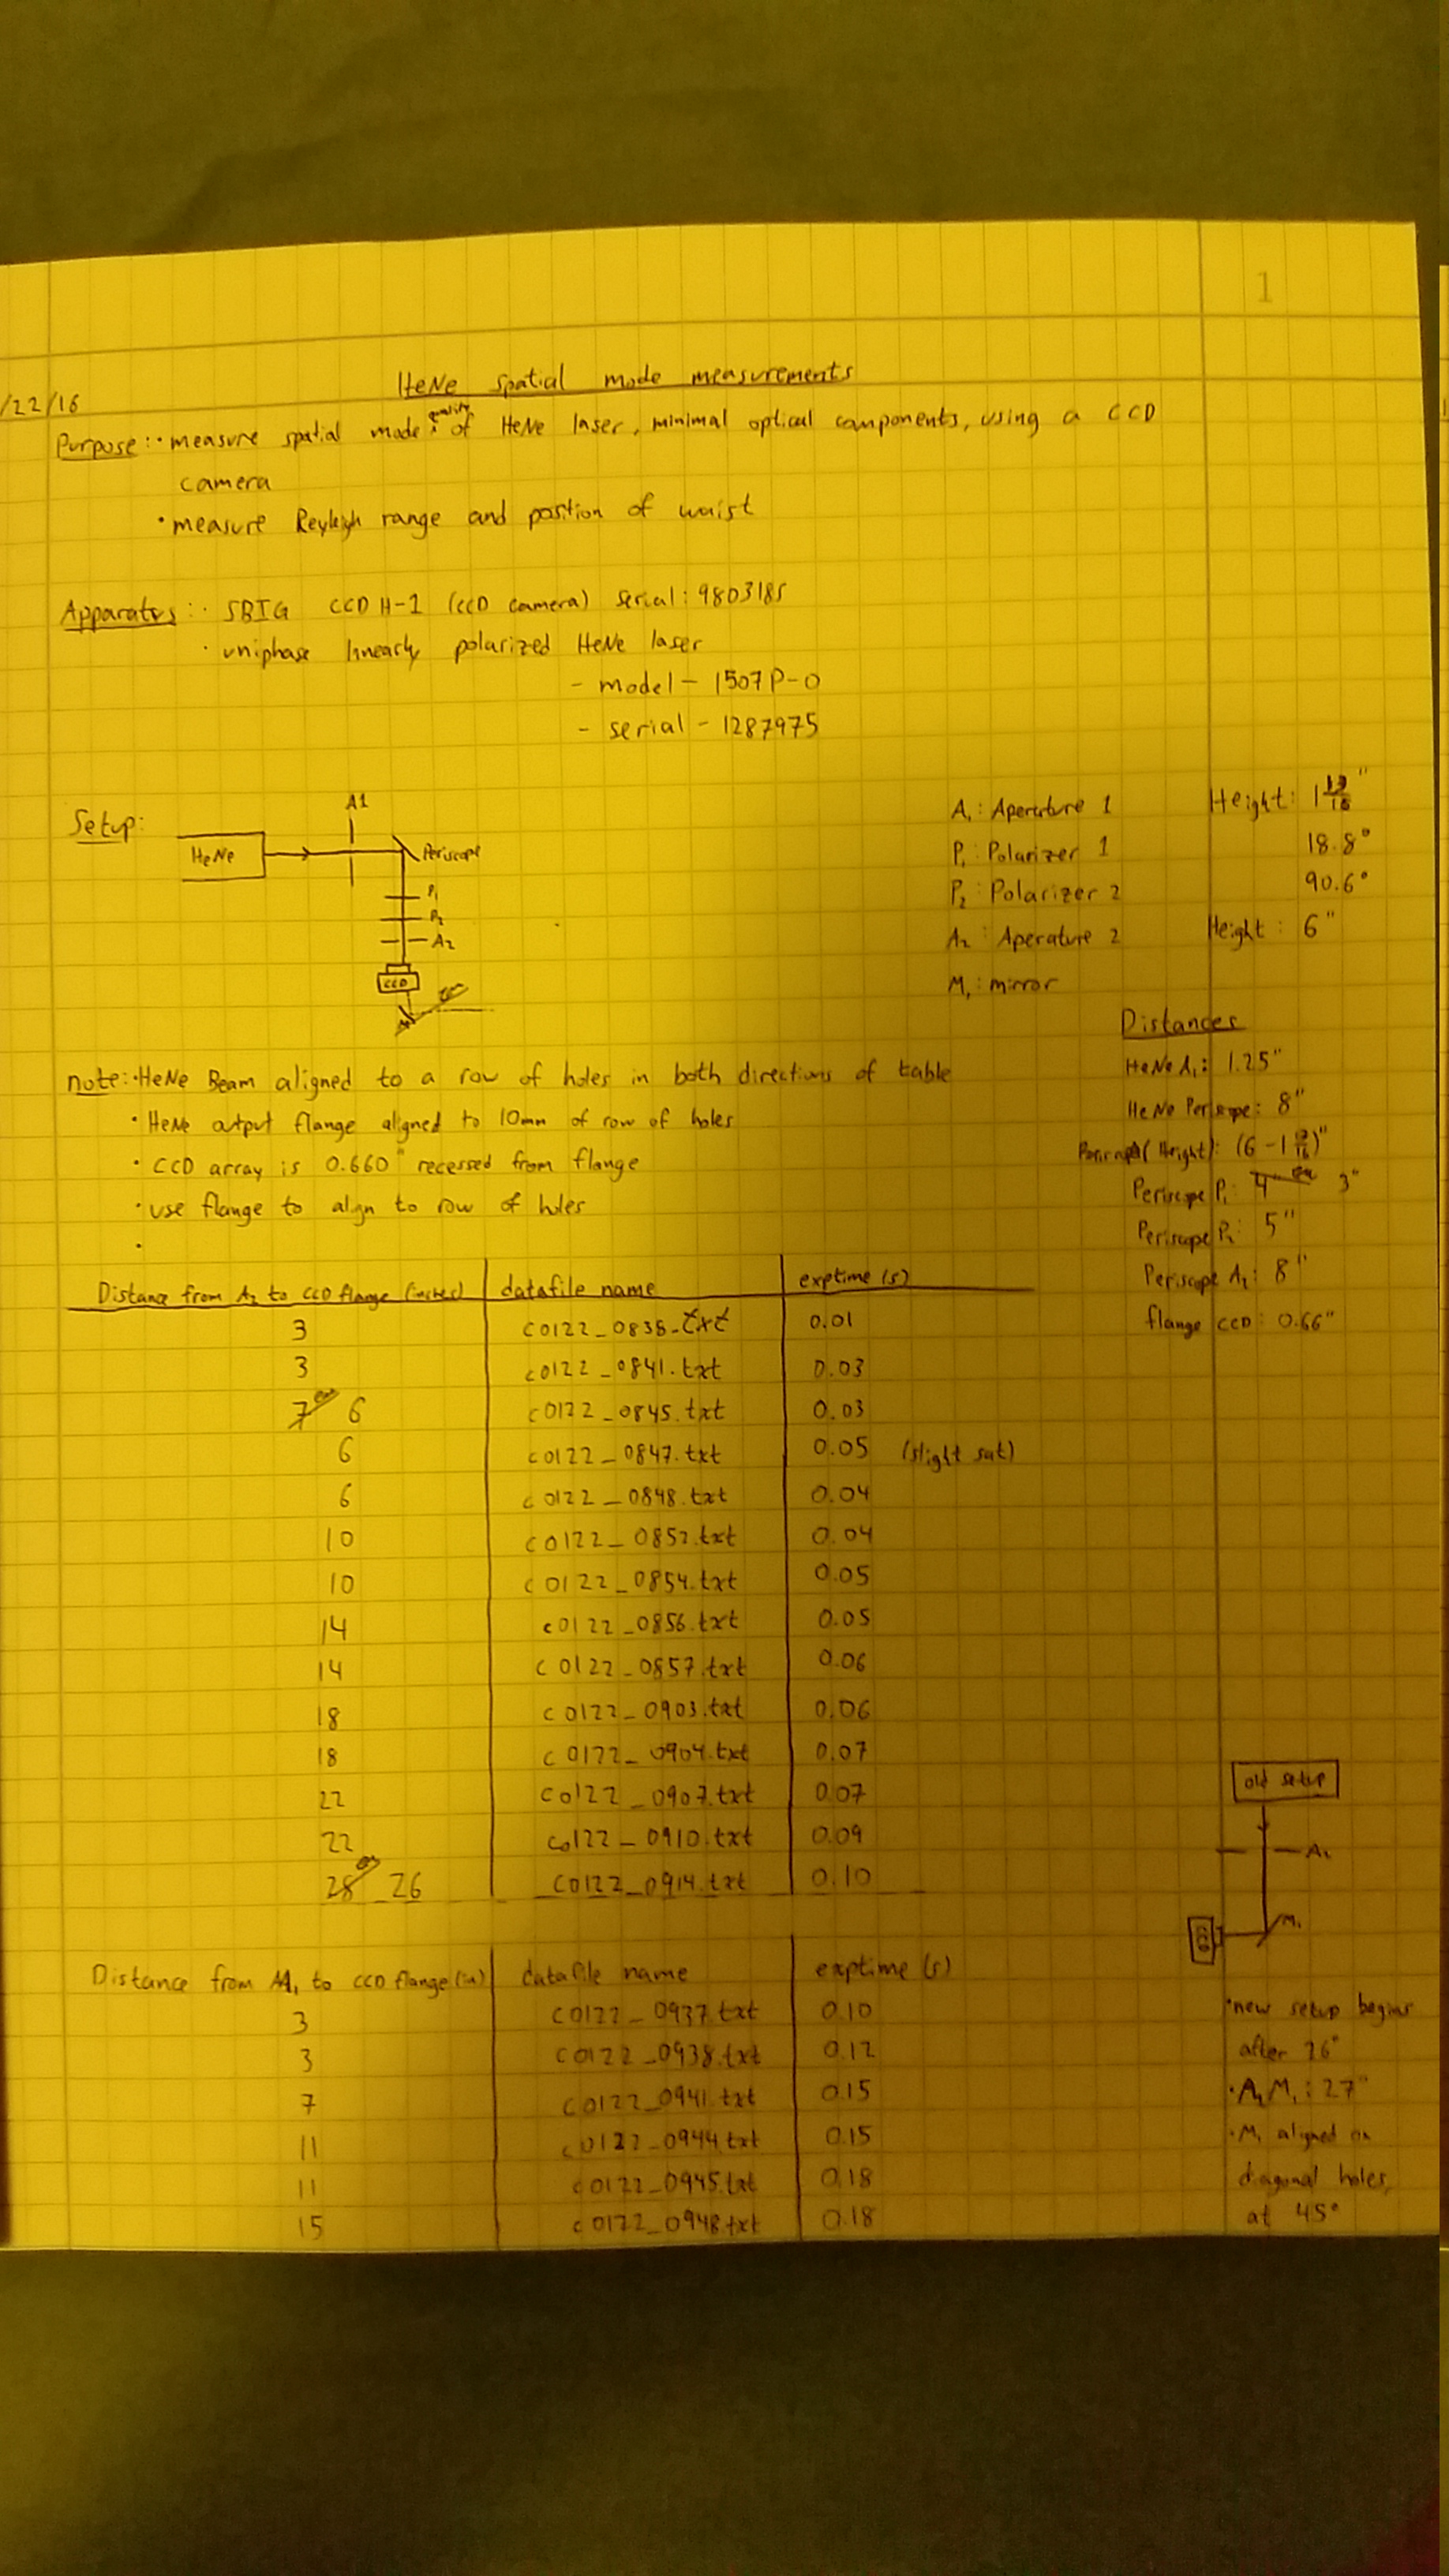 1
HeNe spatial mode measurements
/22/16
Purpose: · measure spatial mode quality of HeNe laser, minimal optical components, using a CCD
camera
· measure Reyleigh range and position of waist
Apparatus: · SBIG CCD H-1 (CCD camera) serial: 9803185
· uniphase linearly polarized HeNe laser
- model - 1507P-0
- serial - 1287975
Setup:
A1
HeNe
Periscope
P1
P2
A2
CCD
A1: Aperature 1 Height: 1 13/16"
P1: Polarizer 1 18.8°
P2: Polarizer 2 90.6°
A2: Aperature 2 Height: 6"
M1: mirror
Distances
HeNe A1: 1.25"
HeNe Periscope: 8"
(Height): (6 - 1 13/16)"
Periscope P1: 4 3"
Periscope P2: 5"
Periscope A2: 8"
flange CCD: 0.66"
note: · HeNe Beam aligned to a row of holes in both directions of table
· HeNe output flange aligned to 10mm of row of holes
· CCD array is 0.660" recessed from flange
· use flange to align to row of holes
·
Distance from A2 to CCD flange (inches) datafile name exptime (s)
3 c0122_0838.txt 0.01
3 c0122_0841.txt 0.03
7 6 c0122_0845.txt 0.03
6 c0122_0847.txt 0.05 (slight sat)
6 c0122_0848.txt 0.04
10 c0122_0852.txt 0.04
10 c0122_0854.txt 0.05
14 c0122_0856.txt 0.05
14 c0122_0857.txt 0.06
18 c0122_0903.txt 0.06
18 c0122_0904.txt 0.07
22 c0122_0907.txt 0.07
22 c0122_0910.txt 0.09
28 26 c0122_0914.txt 0.10
old setup
A2
M1
CCD
Distance from M1 to CCD flange (in) datafile name exptime (s)
3 c0122_0937.txt 0.10
3 c0122_0938.txt 0.12
7 c0122_0941.txt 0.15
11 c0122_0944.txt 0.15
11 c0122_0945.txt 0.18
15 c0122_0948.txt 0.18
· new setup begins
after 26"
· A2M1: 27"
· M1 aligned on
diagonal holes,
at 45°